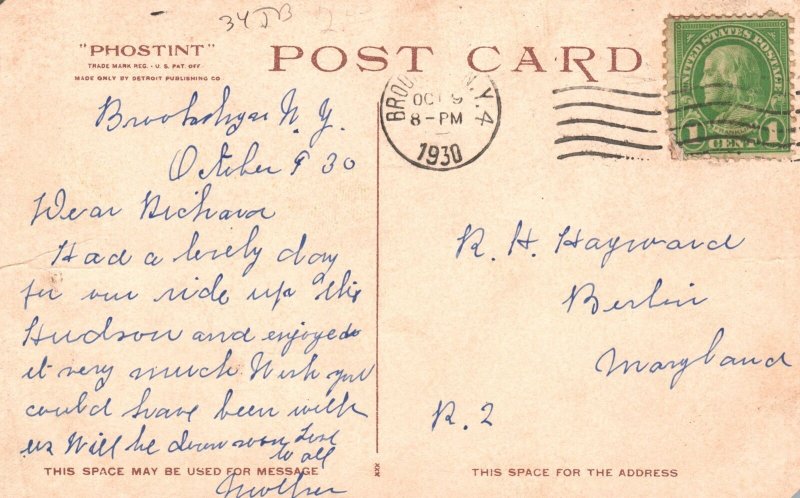 34JB
"PHOSTINT"
TRADE MARK REG. - U.S. PAT. OFF
MADE ONLY BY DETROIT PUBLISHING CO
POST CARD
N.Y. 4
OCT 9
8-PM
1930
UNITED STATES POSTAGE
1 CENT 1
N. Y.
October 9 30
Dear Richard
Had a lovely day
for our ride up the
Hudson and enjoyed
it very much Wish you
could have been with
us Will be down soon Love
to all
Mother
R. H. Hayward
Berlin
Maryland
R. 2
THIS SPACE MAY BE USED FOR MESSAGE
XXX
THIS SPACE FOR THE ADDRESS